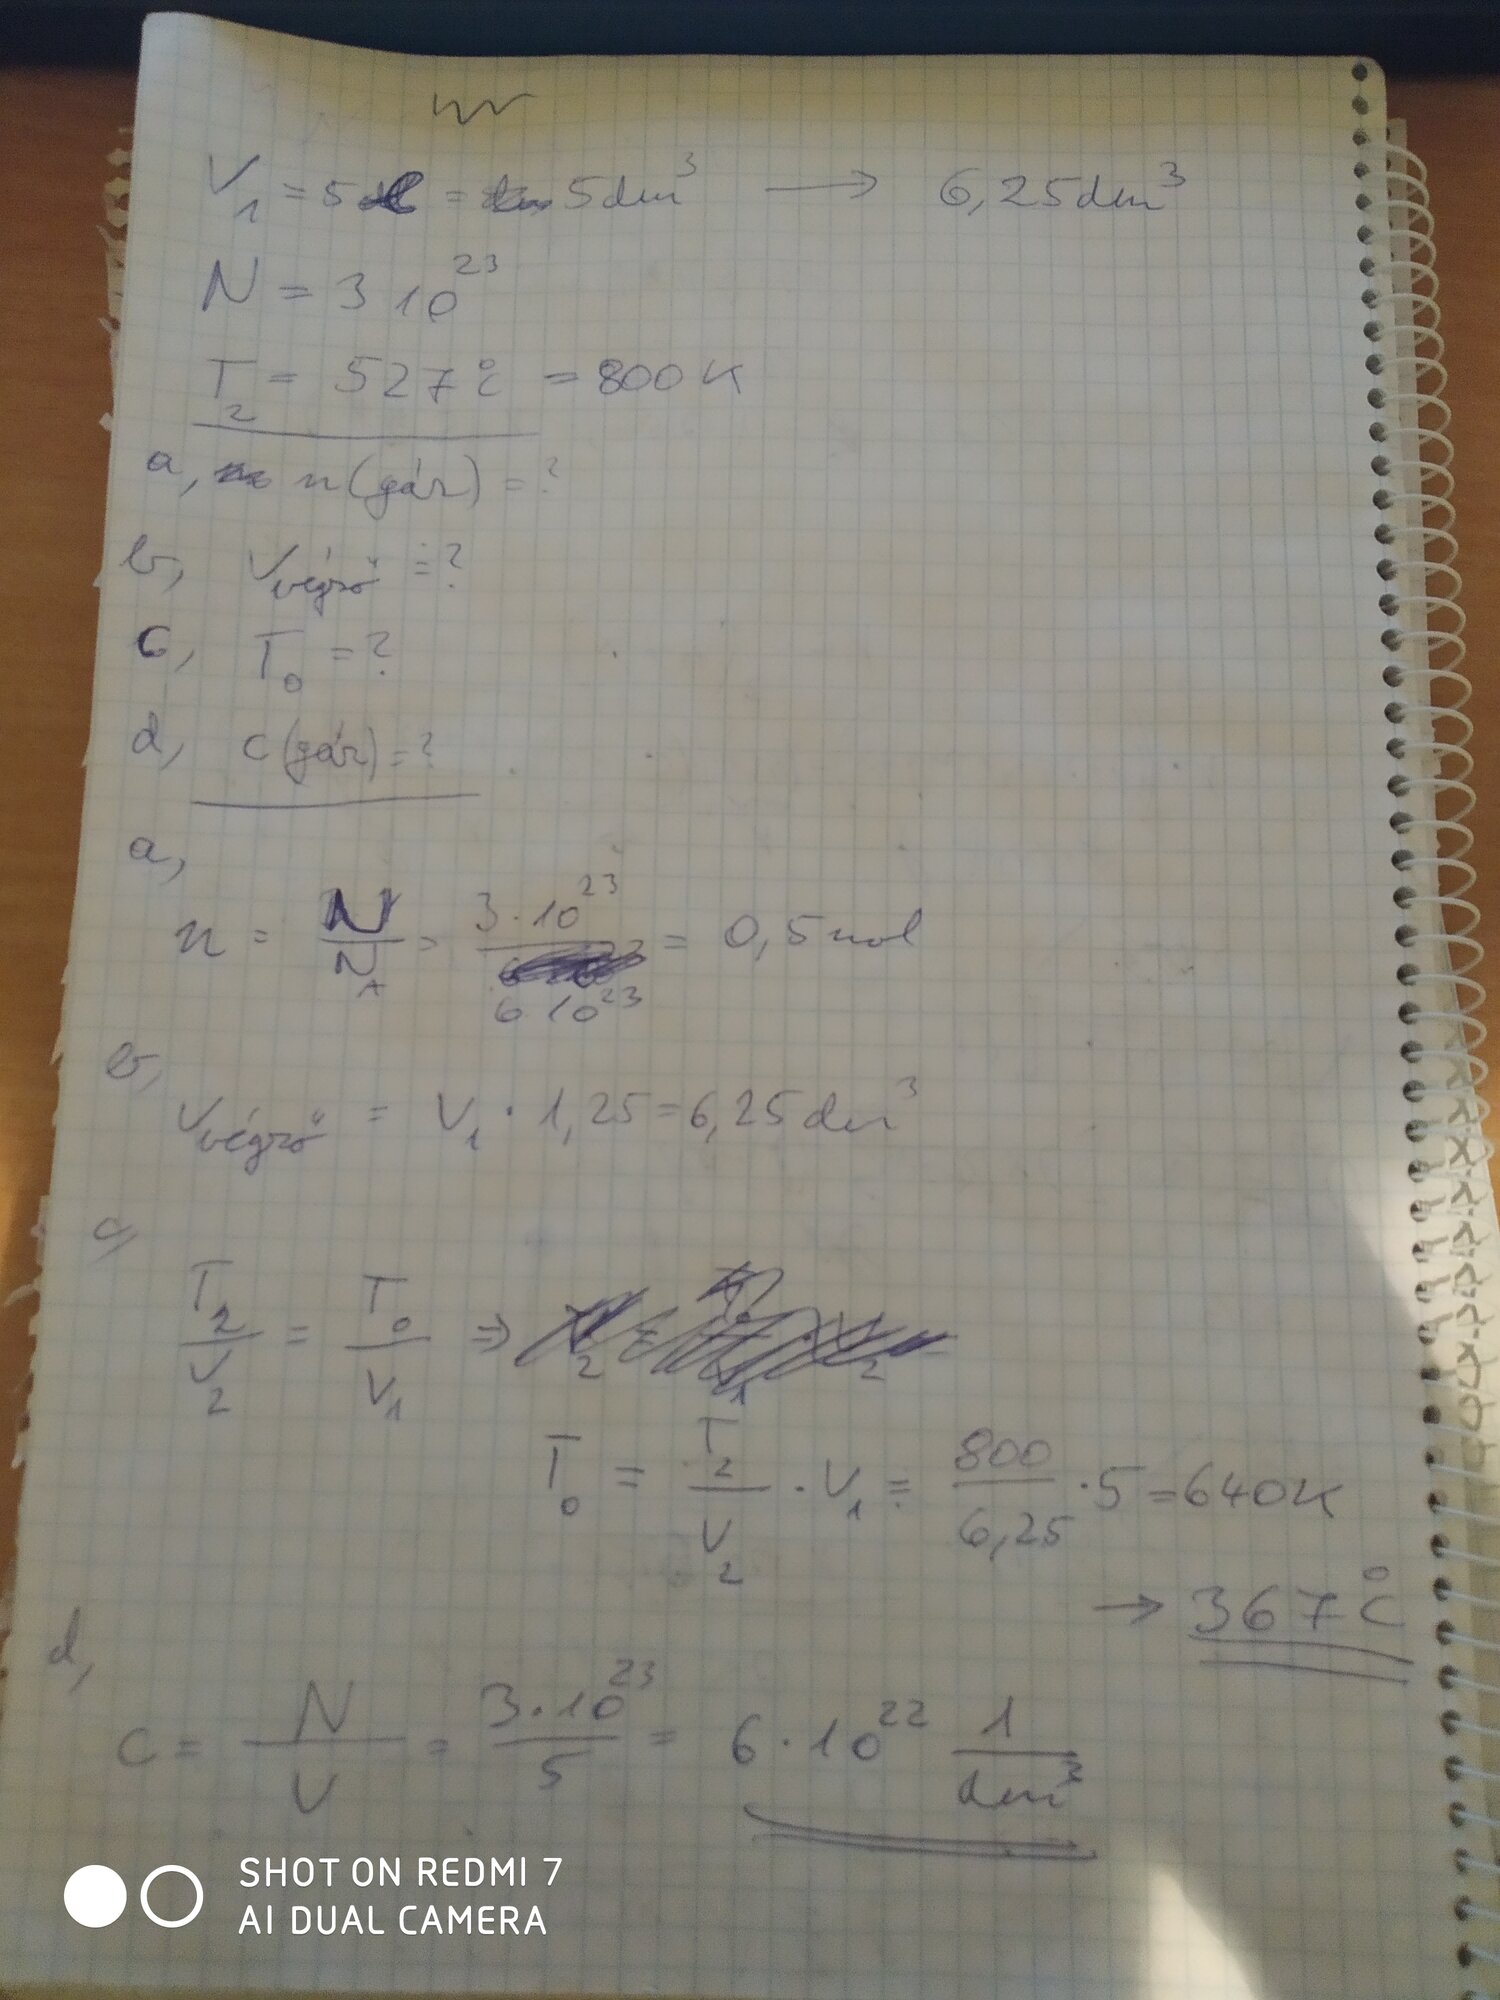 V₁ = 5 = 5dm³ → 6,25dm³
N = 3 10²³
T₂ = 527°C = 800K
a, n(gáz) = ?
b, Vvégső = ?
c, T₀ = ?
d, c(gáz) = ?
a,
n = N/N_A = 3·10²³/6 10²³ = 0,5mol
b,
Vvégső = V₁ · 1,25 = 6,25dm³
c,
T₂/V₂ = T₀/V₁ ⇒
T₀ = T₂/V₂ · V₁ = 800/6,25 · 5 = 640K
→ 367°C
d,
c = N/V = 3·10²³/5 = 6·10²² 1/dm³
SHOT ON REDMI 7
AI DUAL CAMERA